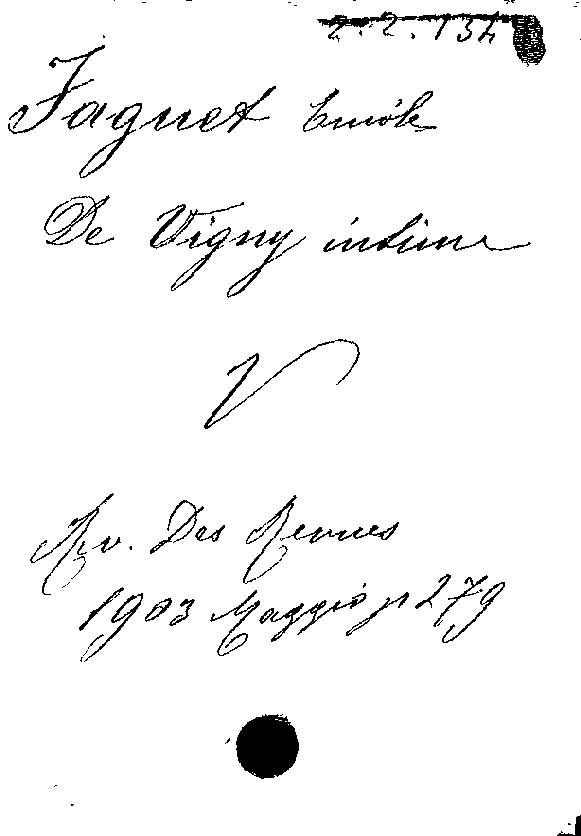 2.2.134
Faguet Emile
De Vigny intime
V
Rev. Des Revues
1903 Maggio p 279